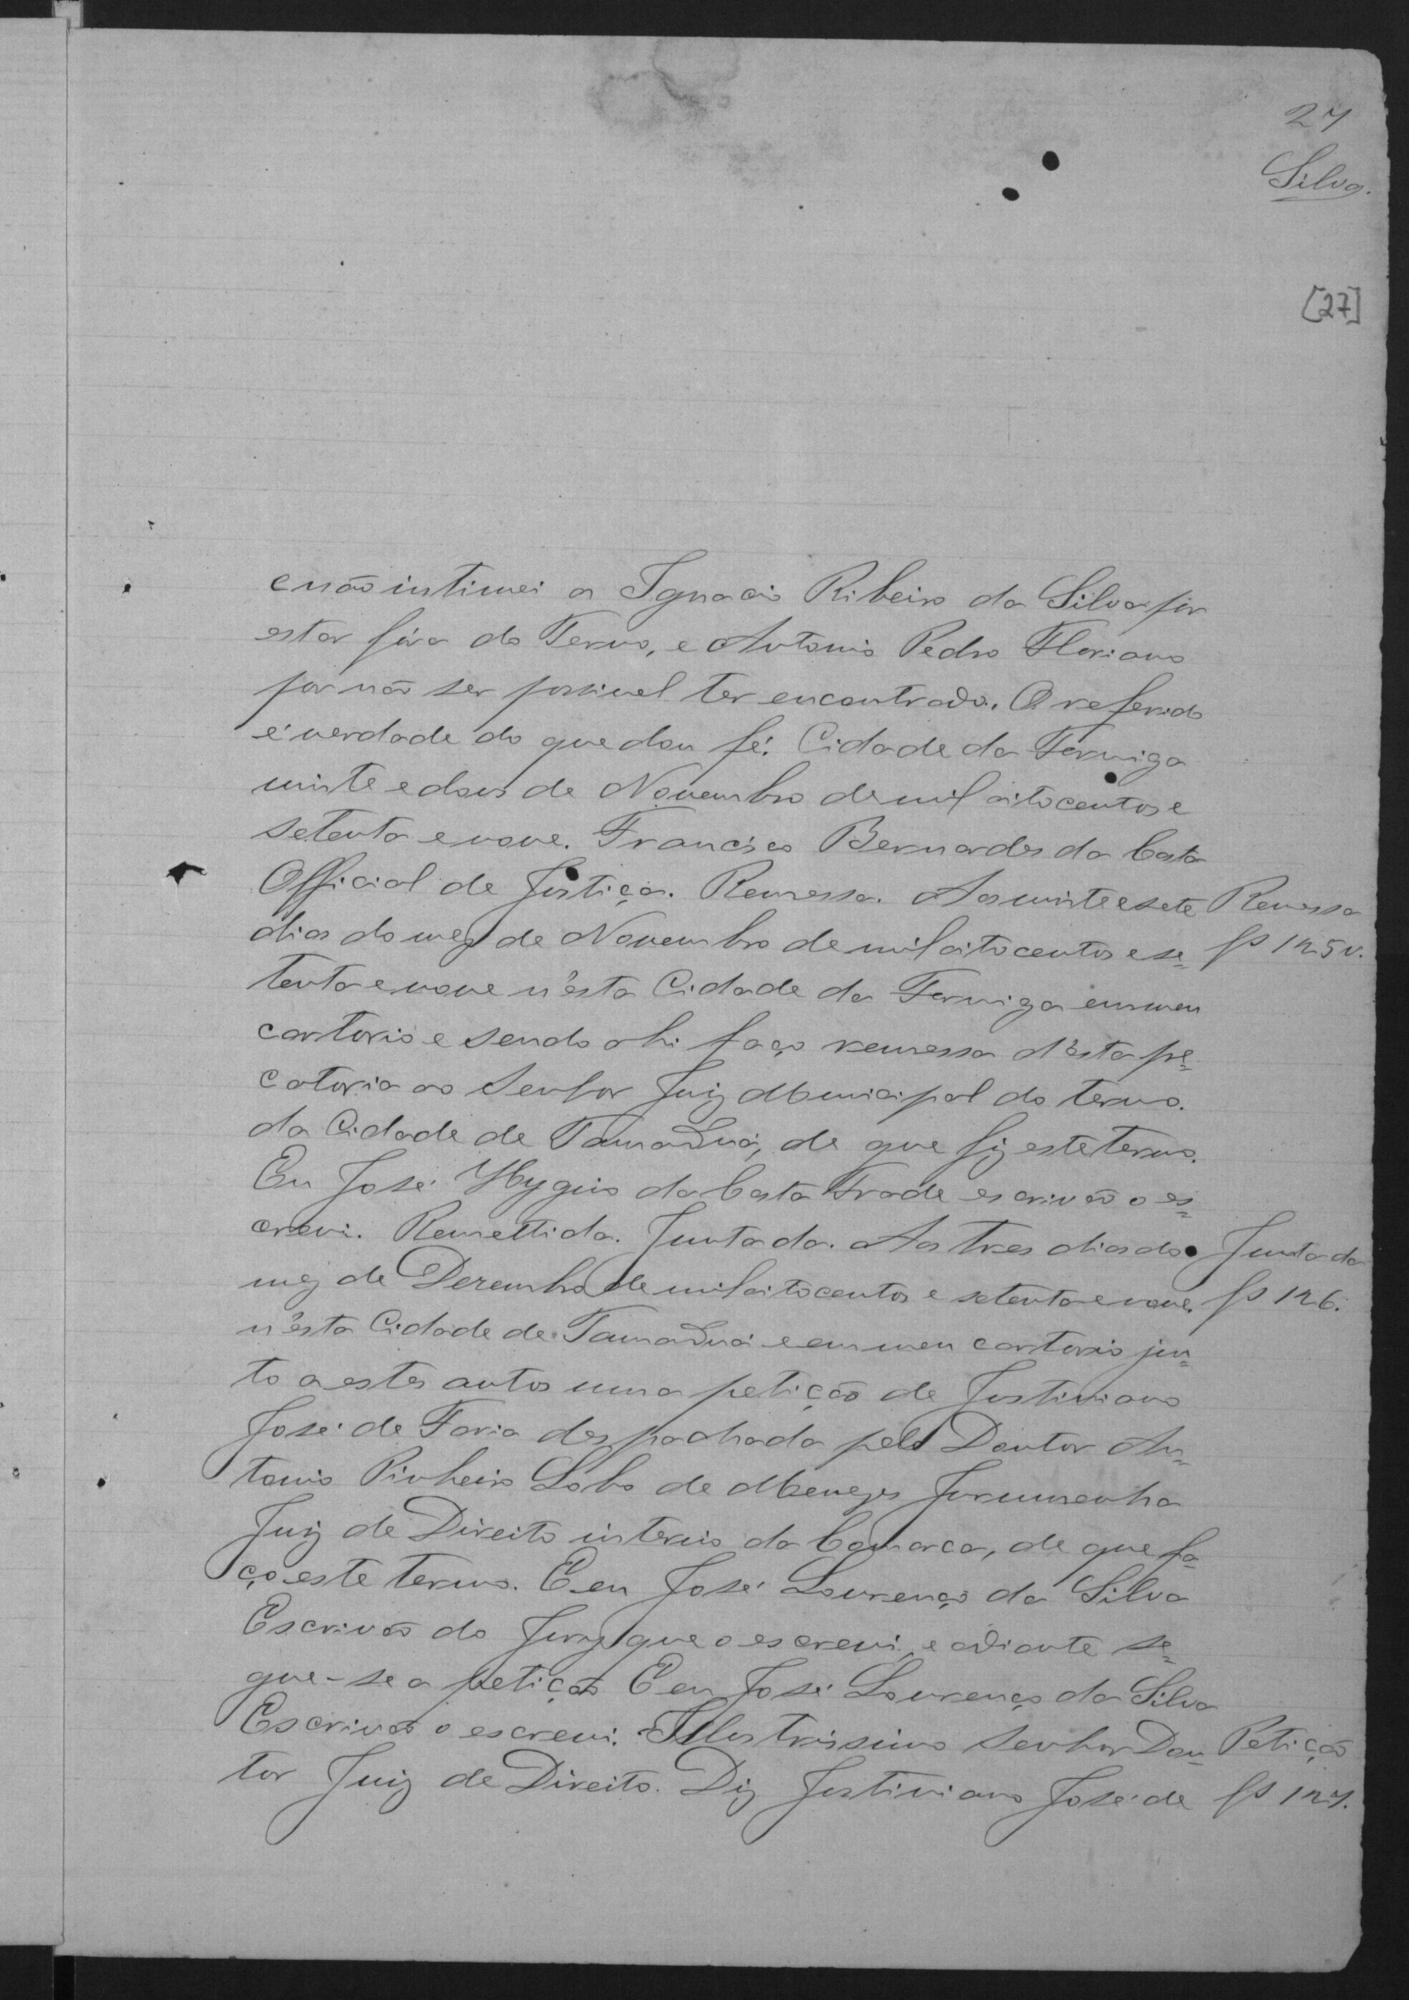 27
Silva.
[27]
e não intimei a Ignacio Ribeiro da Silva por
estar fóra do Termo, e Antonio Pedro Floriano
por não ser possivel ter encontrado. O referido
é verdade do que dou fé. Cidade da Formiga
vinte e dous de Novembro de mil oitocentos e
setenta e nove. Francisco Bernardes da Costa
Official de Justiça. Remessa. Aos vinte e sete Remessa
dias do mez de Novembro de mil oitocentos e se= fs 125v.
tenta e nove n'esta Cidade da Formiga em meu
cartorio e sendo ahi faço remessa d'esta pre=
catoria ao Senhor Juiz Municipal do termo.
da Cidade de Tamanduá, de que fiz este termo.
Eu José Hygino da Costa Frade escrivão o es=
crevi. Remettida. Juntada. Aos tres dias do Juntada
mez de Dezembro de mil oitocentos e setenta e nove, fs 126.
n'esta Cidade de Tamanduá e em meu cartorio jun=
to a estes autos uma petição de Justiniano
José de Faria despachada pelo Doutor An=
tonio Pinheiro Lobo de Menezes Jurumenha
Juiz de Direito interino da Comarca, de que fa=
ço este termo. E eu José Lourenço da Silva
Escrivão do Jury que o escrevi, e adiante se=
gue-se a petição E eu José Lourenço da Silva
Escrivão o escrevi. Illustrissimo Senhor Dou= Petição
tor Juiz de Direito. Diz Justiniano José de fs 127.